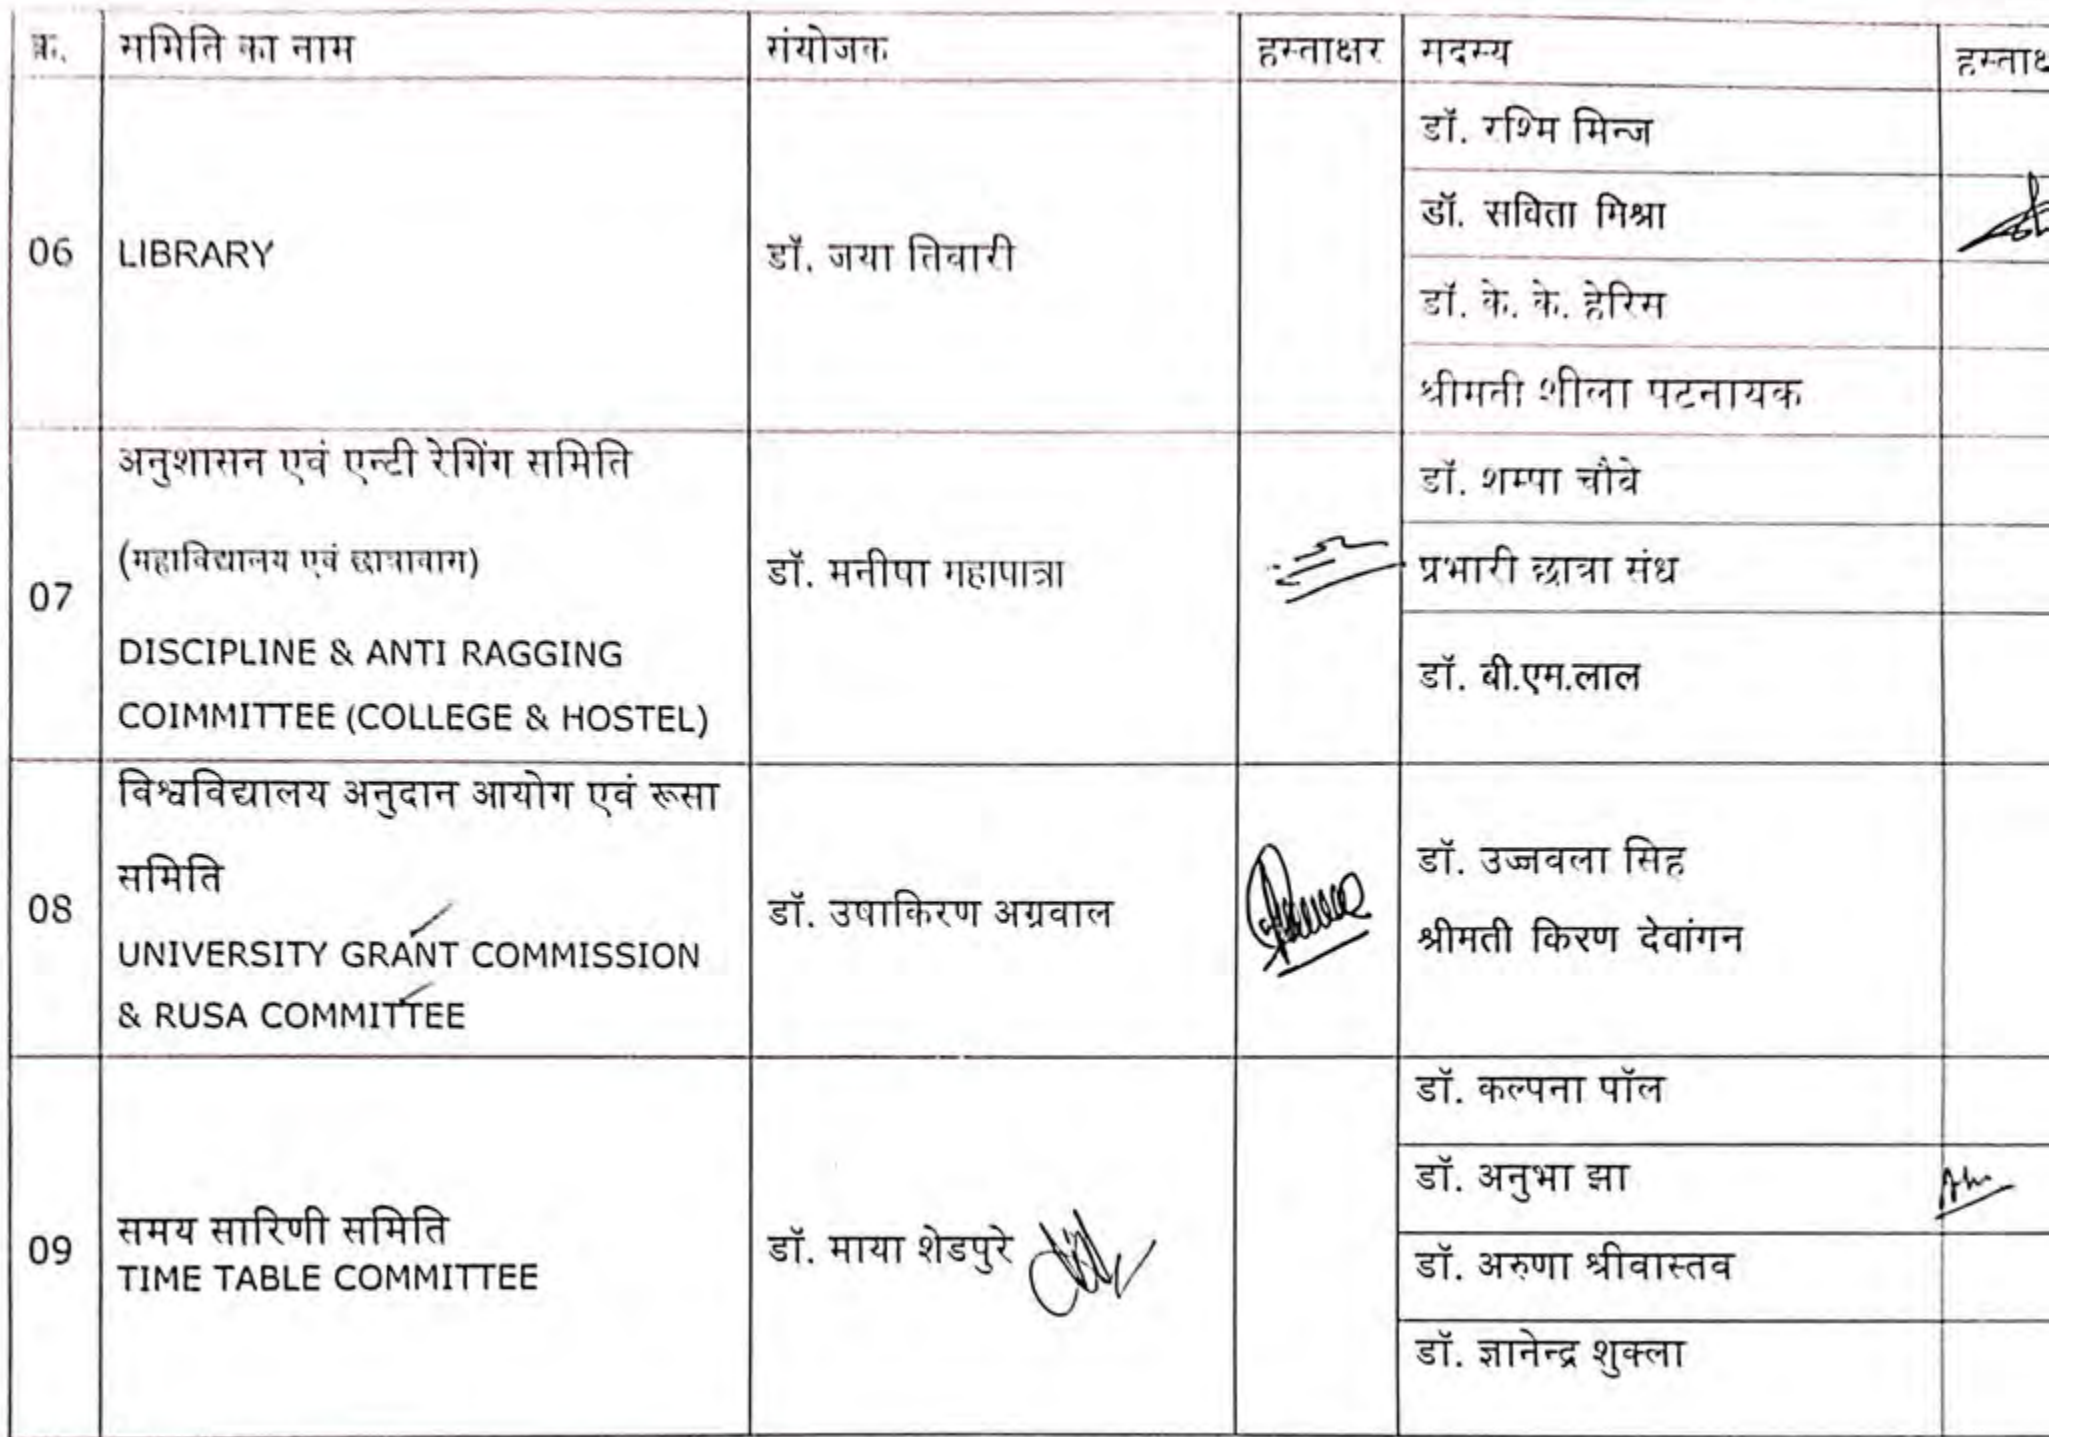 क्र. समिति का नाम संयोजक हस्ताक्षर सदस्य हस्ताक्ष
06 LIBRARY डॉ. जया तिवारी
डॉ. रश्मि मिन्ज
डॉ. सविता मिश्रा
डॉ. के. के. हेरिस
श्रीमती शीला पटनायक
07
अनुशासन एवं एन्टी रेगिंग समिति
(महाविद्यालय एवं छात्रावास)
DISCIPLINE & ANTI RAGGING
COIMMITTEE (COLLEGE & HOSTEL)
डॉ. मनीषा महापात्रा
डॉ. शम्पा चौबे
प्रभारी छात्रा संध
डॉ. बी.एम.लाल
08
विश्वविद्यालय अनुदान आयोग एवं रूसा
समिति
UNIVERSITY GRANT COMMISSION
& RUSA COMMITTEE
डॉ. उषाकिरण अग्रवाल
डॉ. उज्जवला सिह
श्रीमती किरण देवांगन
09
समय सारिणी समिति
TIME TABLE COMMITTEE
डॉ. माया शेडपुरे
डॉ. कल्पना पॉल
डॉ. अनुभा झा
डॉ. अरुणा श्रीवास्तव
डॉ. ज्ञानेन्द्र शुक्ला